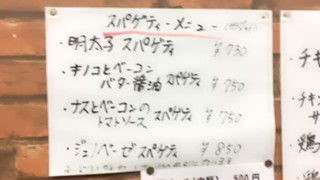 スパゲティ・メニュー
・明太子 スパゲティ ￥750
・キノコとベーコン
バター醤油 スパゲティ ￥750
・ナスとベーコンの
トマトソース スパゲティ ￥750
・ジェノベーゼ スパゲティ ￥850
500円
チキ
チキ
サ
・鶏
鶏